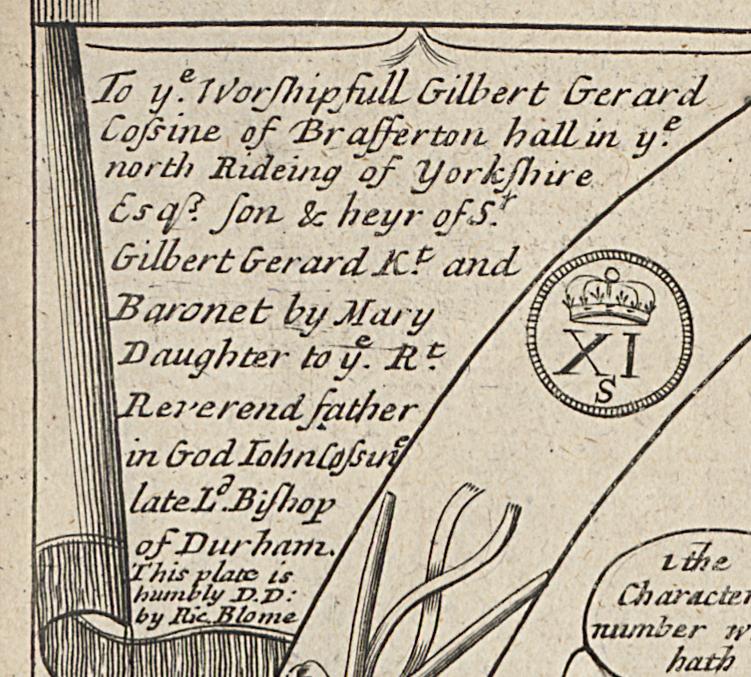 To yᵉ. Worſhipfull Gilbert Gerard
Coſsine of Brafferton hall in yᵉ.
north Rideing of Yorkſhire
Esqʳ. ſon & heyr of Sʳ.
Gilbert Gerard Kᵗ. and
Baronet by Mary
Daughter to yᵉ. Rᵗ.
Reverend father
in God Iohn Coſsinᵉ
late Lᵈ. Biſhop
of Durham.
This plate is
humbly D.D:
by Ric. Blome
XI
S
1 the
Character
number w
hath